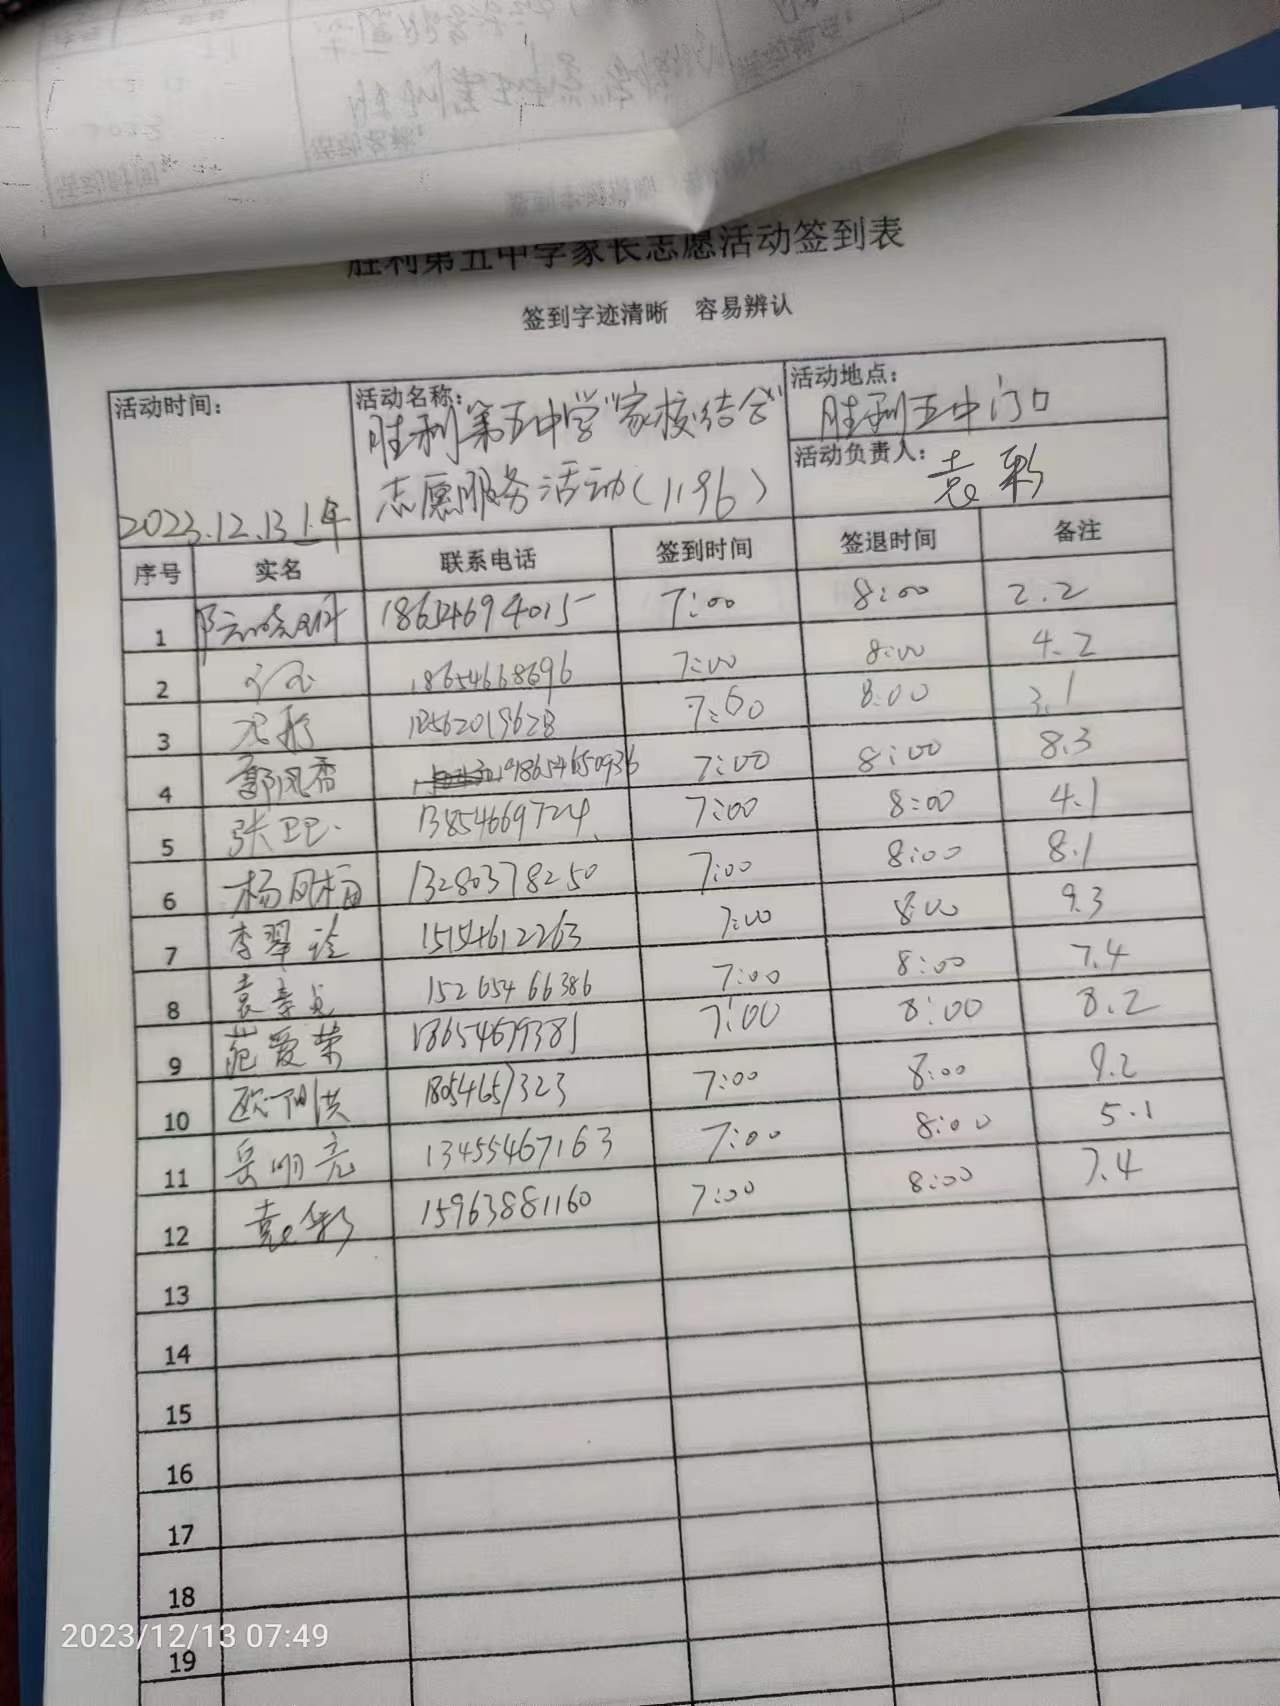 胜利第五中学家长志愿活动签到表
签到字迹清晰 容易辨认
活动时间: 2023.12.13上午
活动名称: 胜利第五中学"家校结合"
志愿服务活动(1196)
活动地点: 胜利五中门口
活动负责人: 袁彩
序号 实名 联系电话 签到时间 签退时间 备注
1 18654694015 7:00 8:00 2.2
2 18654668696 7:00 8:00 4.2
3 7:00 8:00 3.1
4 郭凤香 18654650936 7:00 8:00 8.3
5 张卫 13854669724 7:00 8:00 4.1
6 杨凤梅 13280378250 7:00 8:00 8.1
7 李翠玲 15154612263 7:00 8:00 9.3
8 袁 15265466386 7:00 8:00 7.4
9 范爱荣 18654679381 7:00 8:00 8.2
10 欧阳洪 18054657323 7:00 8:00 9.2
11 岳明亮 13455467163 7:00 8:00 5.1
12 袁彩 15963881160 7:00 8:00 7.4
13
14
15
16
17
18
19
2023/12/13 07:49